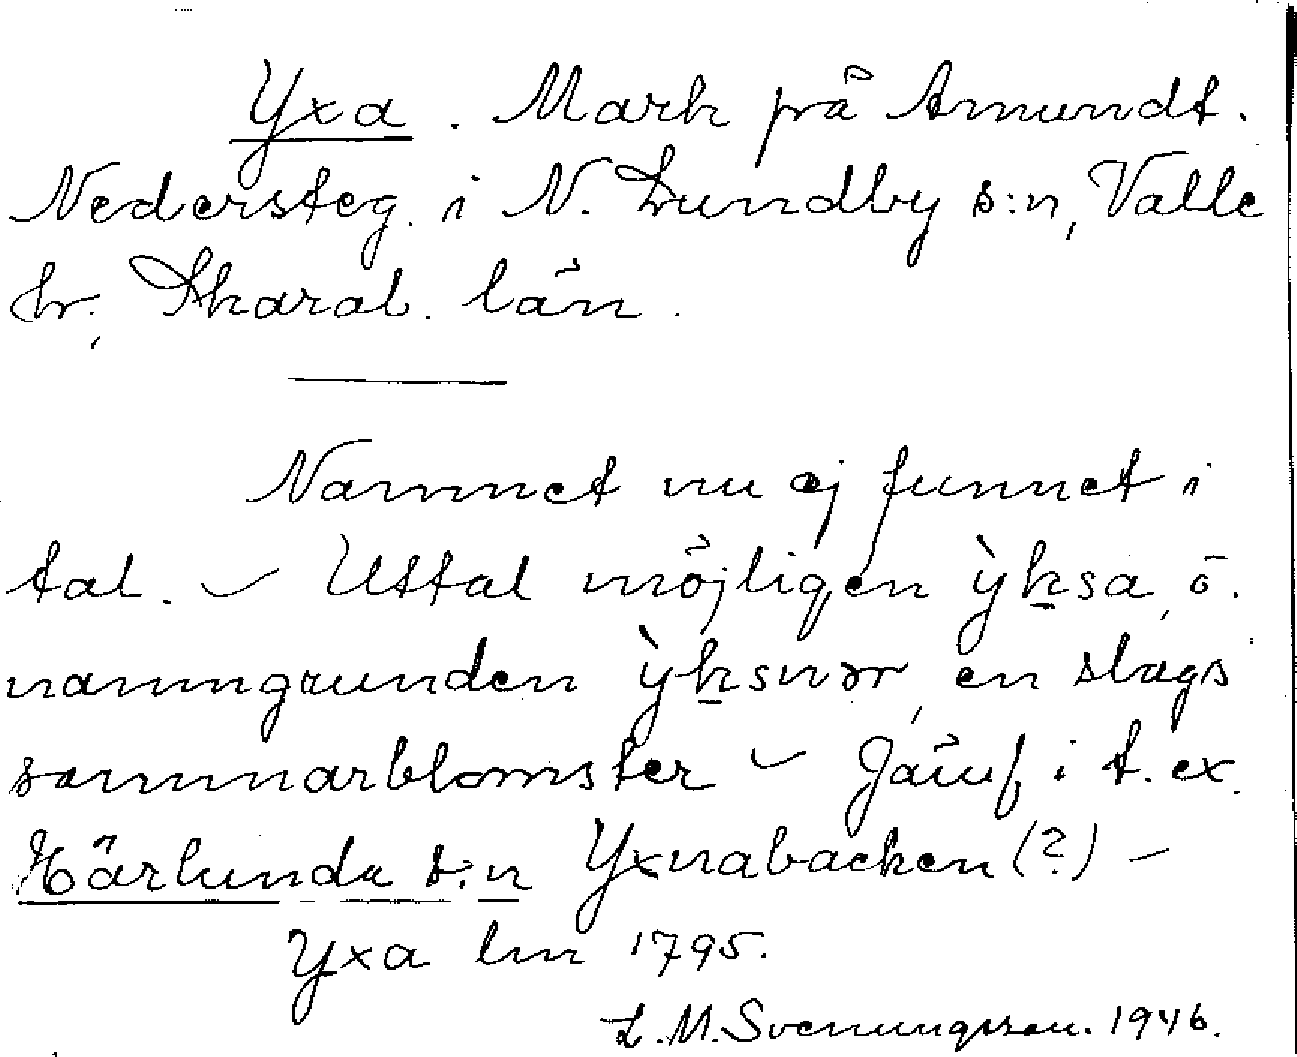 Yxa. Mark på Amundt.
Nedersteg. i N. Lundby s:n, Valle
hr, Skarab. län.
Namnet nu ej funnet i
tal. – Uttal möjligen ỳksa, o.
namngrunden ỳksnər, en slags
sammarblomster – Jämf i t.ex.
Härlunda s:n Yxnabacken (?) –
Yxa lm 1795.
L. M. Svenungsson. 1946.